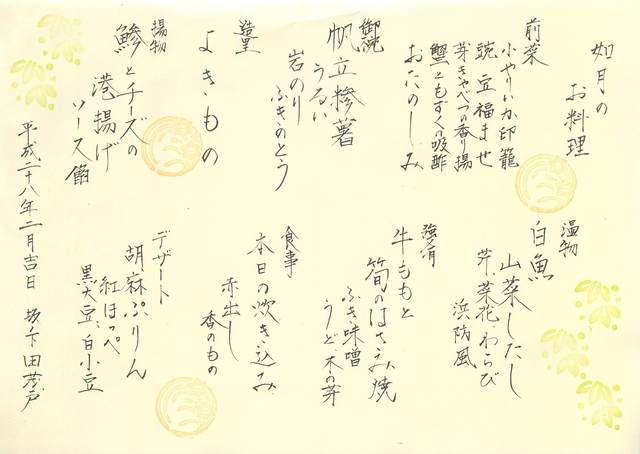 如月の
お料理
前菜
小やりいか印籠
豌豆福ませ
芽きゃべつの香り揚
蟹ともずくの吸酢
おたのしみ
御椀
帆立糝薯
うるい
岩のり
ふきのとう
造里
よきもの
揚物
鯵とチーズの
湊揚げ
ソース餡
温物
白魚
山菜したし
芹、菜花、わらび
浜防風
強肴
牛ももと
筍のはさみ焼
ふき味噌
うど 木の芽
食事
本日の炊き込み
赤出し
香のもの
デザート
胡麻ぷりん
紅ほっぺ
黒大豆、白小豆
平成二十八年二月吉日